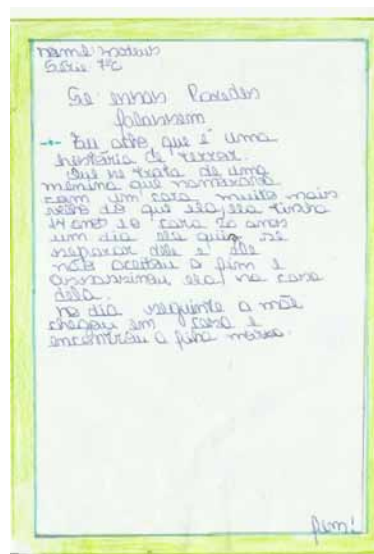 nome: Mateus
Série 7ªC
Se essas Paredes
falassem
Eu acho que é uma
história de terror.
Que se trata de uma
menina que namorava
com um cara muito mais
velho do que ela, ela tinha
14 anos e o cara 20 anos
um dia ela quis se
separar dele e ele
não aceitou o fim e
assassinou ela na casa
dela.
no dia seguinte a mãe
chegou em casa e
encontrou a filha morta.
fim!